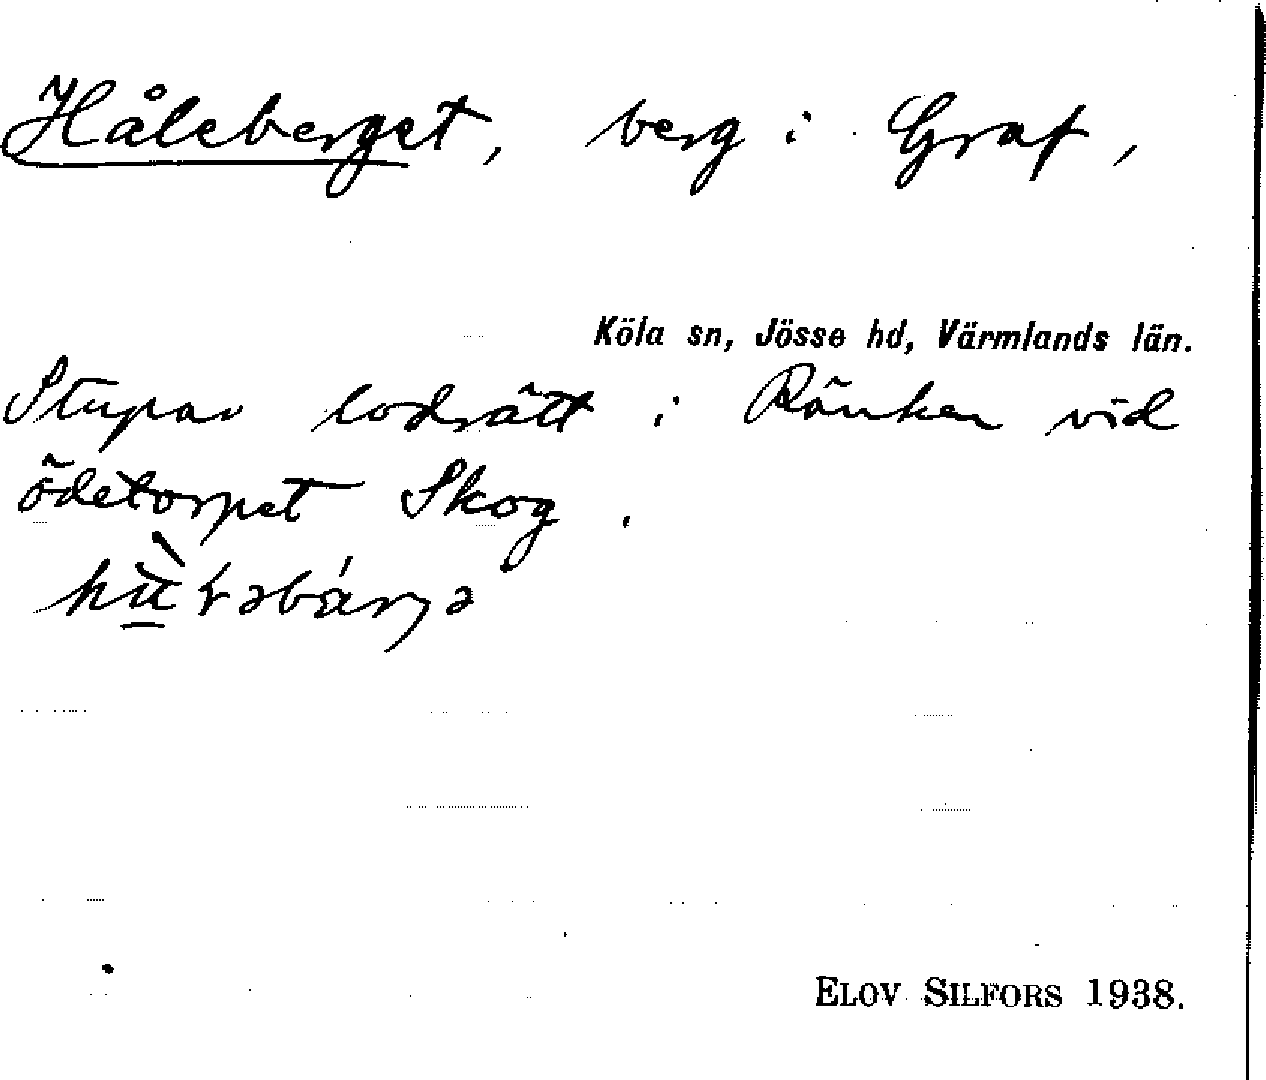 Håleberget, berg i Graf,
Köla sn, Jösse hd, Värmlands län.
Stupar lodrätt i Ränken vid
ödetorpet Skog.
ELOV SILFORS 1938.